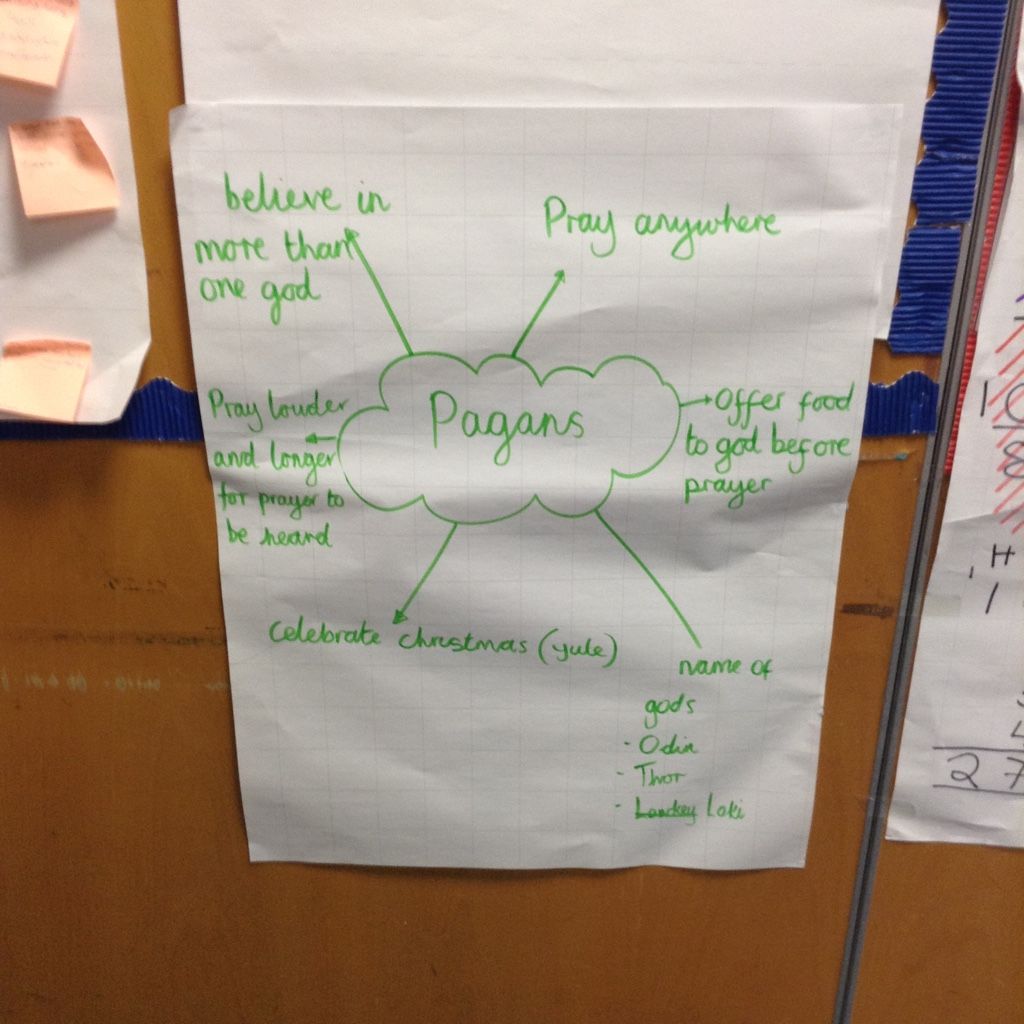 believe in
more than
one god
Pray anywhere
Pagans
Pray louder
and longer
for prayer to
be heard
Offer food
to god before
prayer
Celebrate christmas (yule)
name of
gods
- Odin
- Thor
- Loki
27